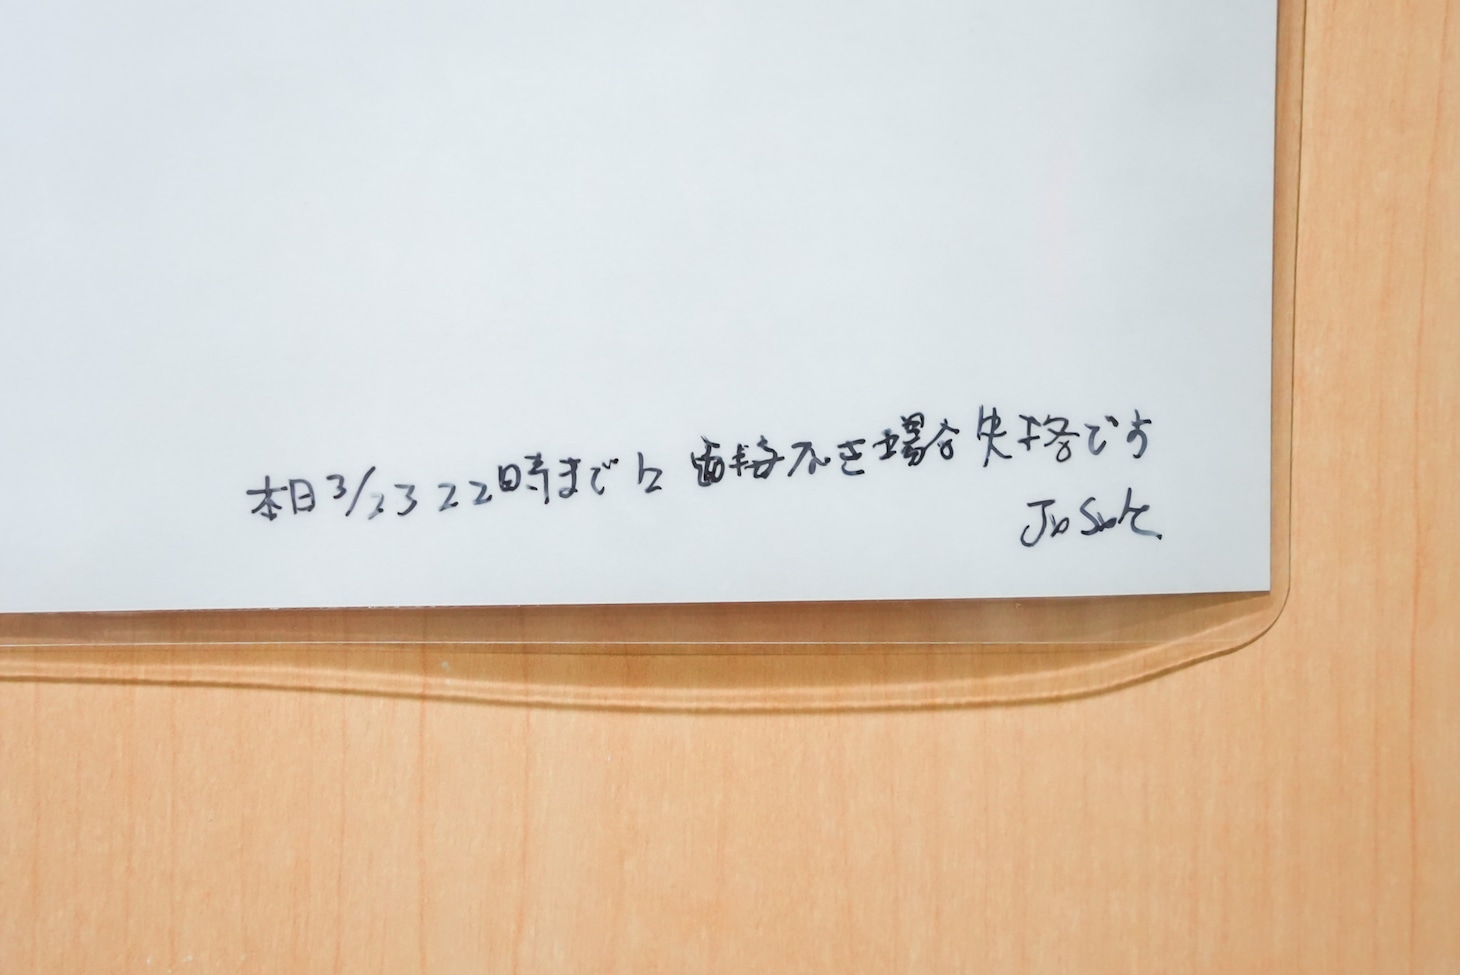 本日3/23 22時までに 面接なき場合失格です